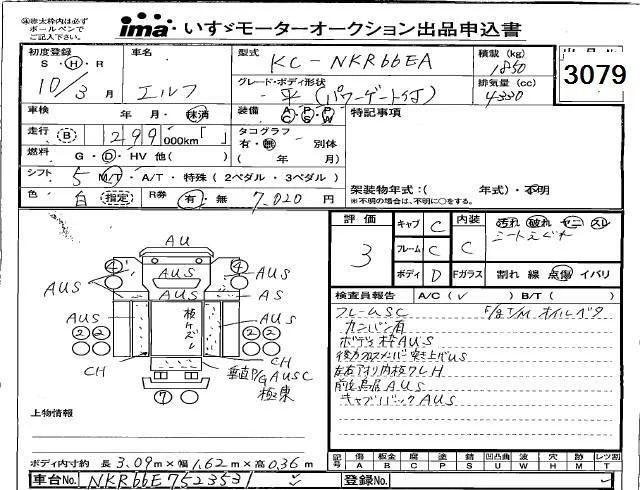 ㊟赤太枠内は必ず
ボールペンで
ご記入下さい。
ima いすゞモーターオークション出品申込書
初度登録
S・H・R
10/3 月
車名
エルフ
型式
KC-NKR66EA
積載(kg)
1850
グレード・ボディ形状
平(パワーゲート付)
排気量(cc)
4330
3079
車検 年 月・抹消
装備 AC PS PW
特記事項
走行 B 299 000km「 」
タコグラフ
有・無 別体
( 年 月)
燃料 G・D・HV 他( )
シフト 5 M/T・A/T・特殊(2ペダル・3ペダル)
色 白 指定 R券 有・無 7,020 円
架装物年式:( 年式)・不明
※不明の場合は、不明に○をする。
評価
3
キャブ C
フレーム C
ボディ D
内装
C
Fガラス
汚れ 破れ ヤニ スレ
シートえぐれ
割れ 線 点傷 イバリ
検査員報告 A/C(✓) B/T( )
フレームSC
カンバン有
ボディ枠AUS
キャブバックAUS
AU
AUS
AUS
AUS
AUS
AS
AUS
AUS
CH
CH
4
4
2 2
2 2
7
上物情報
ボディ内寸約 長3.09m×幅1.62m×高0.36m
記号 傷A 板金B 腐C 塗P 錆S 凹凸曲U 波W 穴H 跡M レツ割T
車台No. NKR66E7523531
登録No.